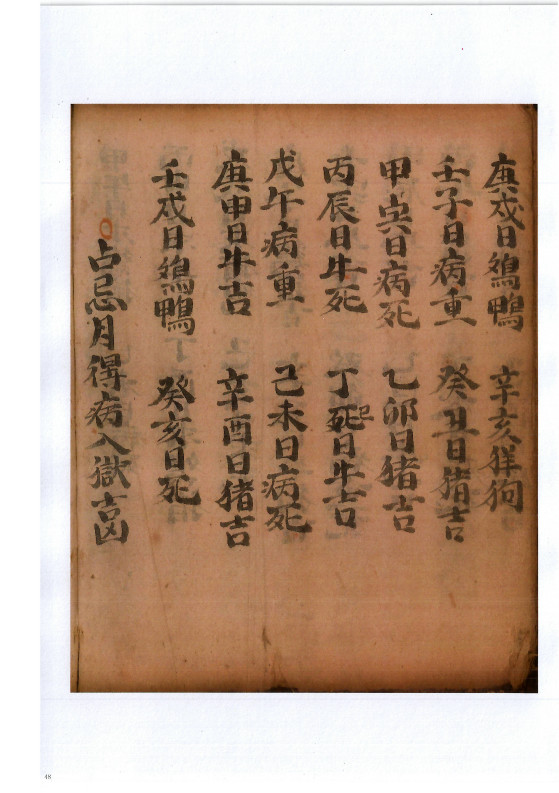 庚戌日鷄鴨 辛亥徉狗
壬子日病重 癸丑日猪吉
甲寅日病死 乙卯日猪吉
丙辰日牛死 丁死巳日牛吉
戊午病重 己未日病死
庚申日牛吉 辛酉日猪吉
壬戌日鷄鴨 癸亥日死
占忌月得病入獄吉凶
48